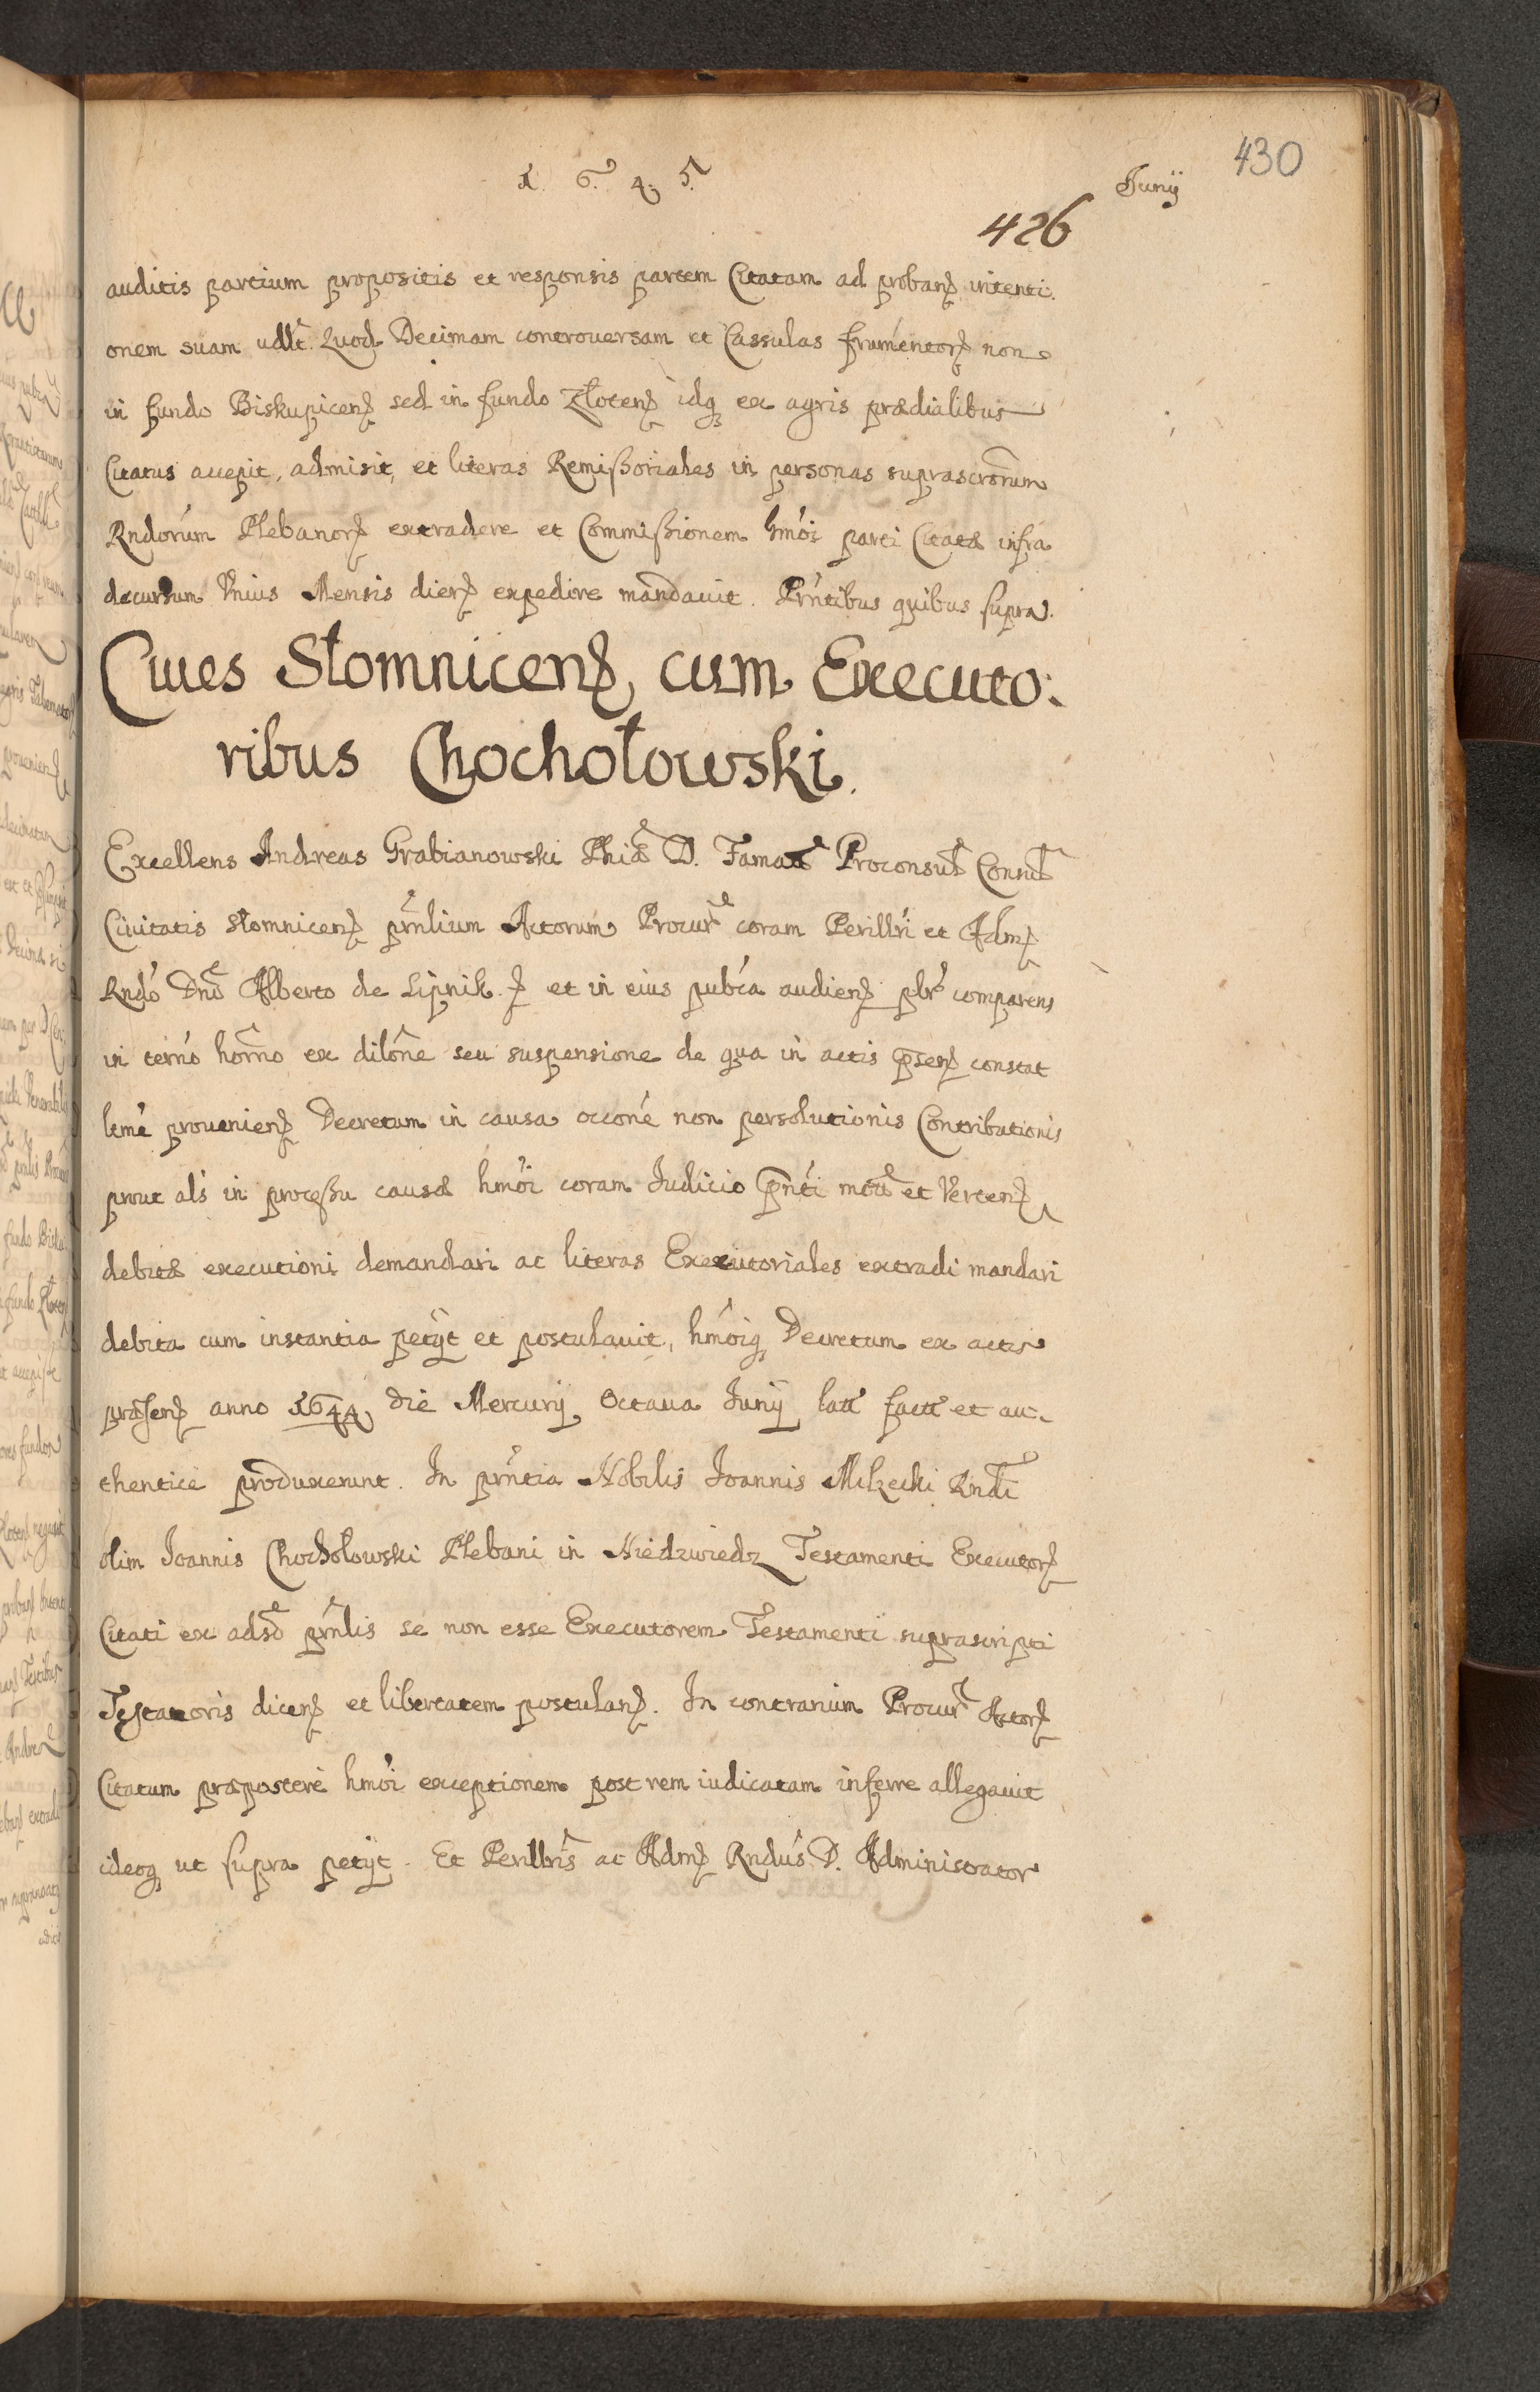 430
1. 6. 4. 5.
Junÿ
426
auditis partium propositis et responsis partem Citatam ad proban₎ intenti.
onem suam udłt. Quod Decimam controuersam et Cassulas frumentor₎ non
in fundo Biskupicen₎ sed in fundo Złoten₎ idq₎ ex agris prædialibus
Citatus accepit, admisit, et literas Remißoriales in personas suprascrorum
Rndorum Plebanor₎ extradere et Commißionem hmoi parti Citatæ infra
decursum Vnius Mensis dier₎ expedire mandauit. Prntibus quibus supra.
Ciues Słomnicen₎ cum Executo:
ribus Chochołowski.
Excellens Andreas Grabianowski Phiæ D. Famatt Proconsul Consul
Ciuitatis słomnicen₎ prnlium Actorum Procur coram Perillri et Adm₎
Rndo Dno Alberto de Lipnik ₎ et in eius publca audien₎ pblr comparens
in termo horno ex dilone seu suspensione de qua in actis psen₎ constat
leme prouenien₎ Decretum in causa occone non persolutionis Contributionis
prout als in proceßu causæ hmoi coram Iudicio pnti mota et Verten₎
debitæ executioni demandari ac literas Executoriales extradi mandari
debita cum instantia petÿt et postulauit, hmoiq₎ Decretum ex actis
præsen₎ anno 1644 die Mercurÿ Octaua Junÿ latt factt et au-
thentice produxerunt. In prntia Nobilis Joannis Milżecki Rndi
olim Joannis Chochołowski Plebani in Niedzwiedz Testamenti Executor₎
Citati ex adso prnlis se non esse Executorem Testamenti suprascripti
Testatoris dicen₎ et libertatem postulan₎. In contrarium Procur Actor₎
Citatum præpostere hmoi exceptionem post rem iudicatam inferre allegauit
ideoq₎ ut supra petÿt. Et Perillris ac Adm₎ Rndus D. Administrator